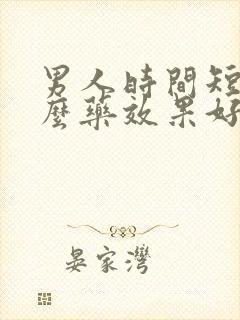 男人時間短
麼藥效果好
晏家灣